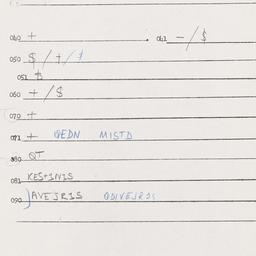 040 +
041 - / $
050 $ / + / $
051 $
060 + / $
070 +
071 + QEDN MISTD
080 QT
081 KES+INIS
090 AVEJRIS